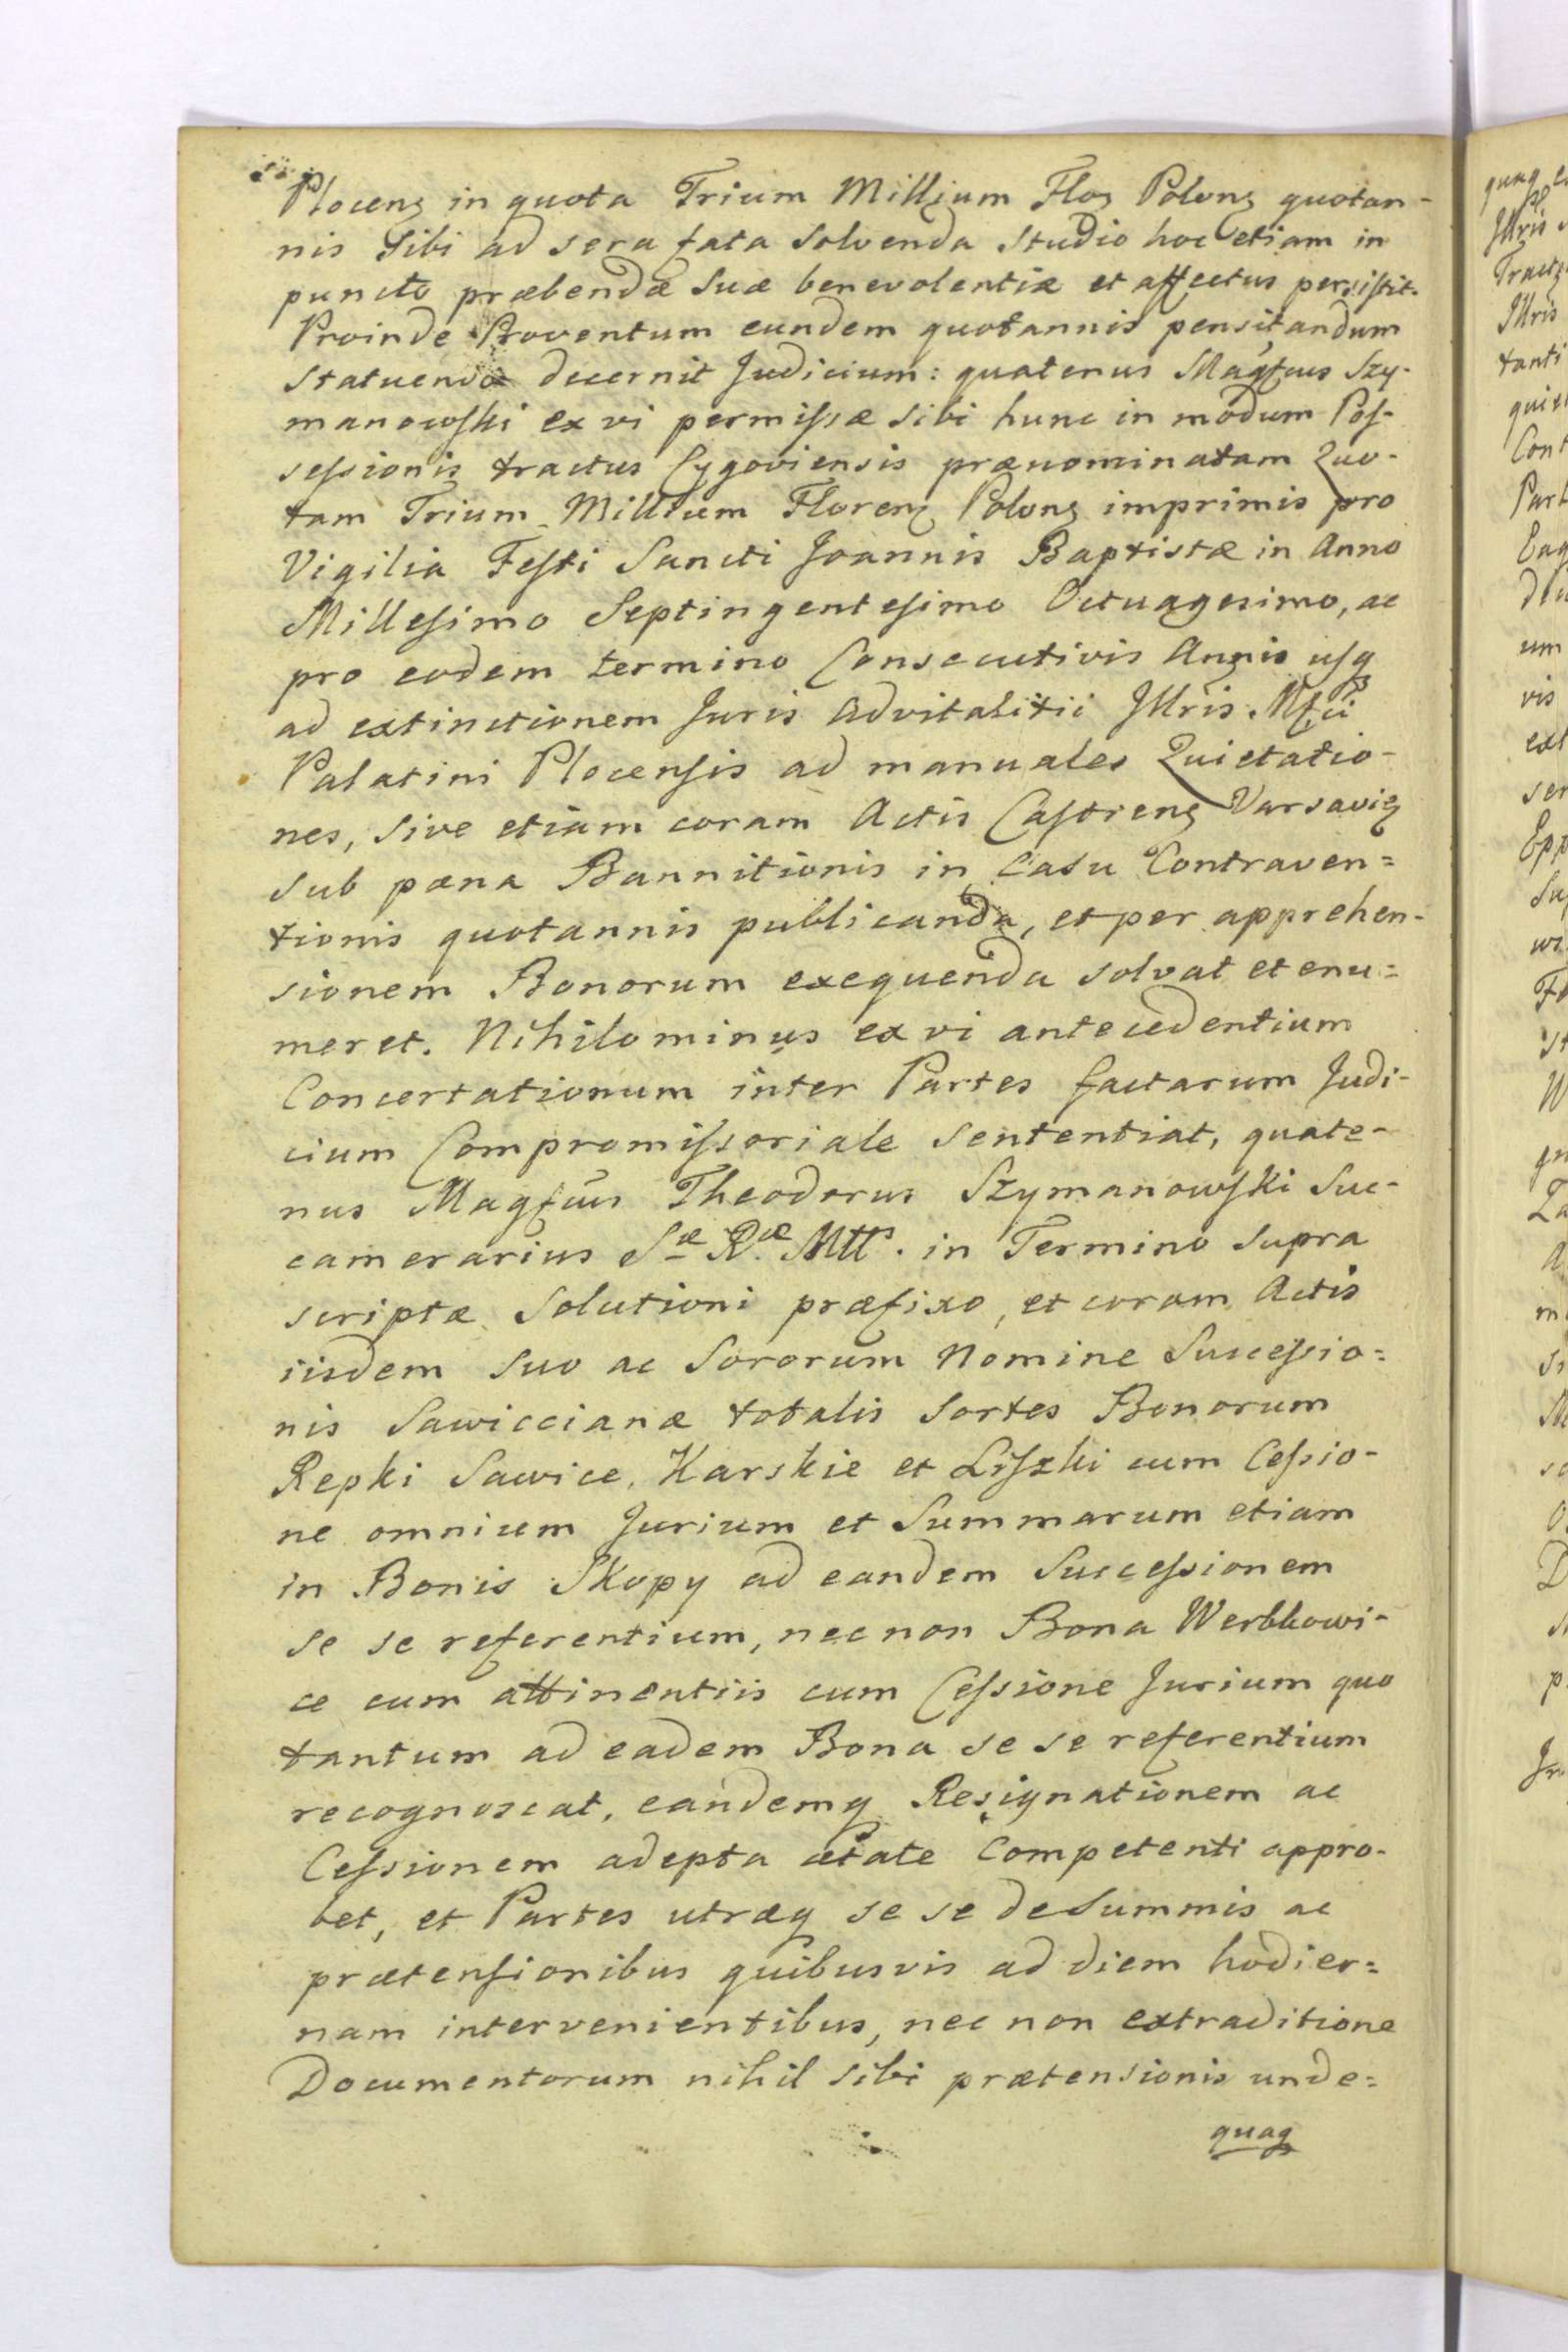 Plocenʒ in quota Trium Millium Floʒ Polonʒ quotan-
nis Sibi ad sera fata Solvenda Studio hoc etiam in
puncto præbendæ Suæ benevolentiæ et affectus persistit.
Proinde Proventum eundem quotannis pensitandum
Statuendo decernit Judicium: quatenus Magfcus Szy-
manowski ex vi permissæ Sibi hunc in modum Pos-
sessionis tractus Cygoviensis prænominatam Quo-
tam Trium Millium Florenʒ Polonʒ imprimis pro
Vigilia Festi Sancti Joannis Baptistæ in Anno
Millesimo Septingentesimo Octuagesimo, ac
pro eodem termino Consecutivis Annis usqʒ
ad extinctionem Juris Advitalitii Jllris Mfci
Palatini Plocensis ad manuales Quietatio-
nes, Sive etiam coram Actis Castrenʒ Varsavię
Sub pæna Bannitionis in Casu Contraven=
tionis quotannis publicanda, et per apprehen-
sionem Bonorum exequenda solvat et enu=
meret. Nihilominus ex vi antecedentium
Concertationum inter Partes factarum Judi-
cium Compromissoriale Sententiat, quate-
nus Magfcus Theodorus Szymanowski Suc-
camerarius Sæ Ræ Mtts. in Termino Supra
scriptæ Solutioni præfixo, et coram Actis
iisdem Suo ac Sororum Nomine Successio=
nis Sawiccianæ totalis Sortes Bonorum
Repki Sawice, Karskie et Liszki cum Cessio-
ne omnium Jurium et Summarum etiam
in Bonis Skopy ad eandem Successionem
se se referentium, nec non Bona Werbkowi-
ce cum attinentiis cum Cessione Jurium quo
tantum ad eadem Bona se se referentium
recognoscat, eandemqʒ Resignationem ac
Cessionem adepta ætate Competenti appro-
bet, et Partes utræqʒ se se de Summis ac
prætensionibus quibusvis ad diem hodier=
nam intervenientibus, nec non extraditione
Documentorum nihil sibi prætensionis unde=
quaqʒ